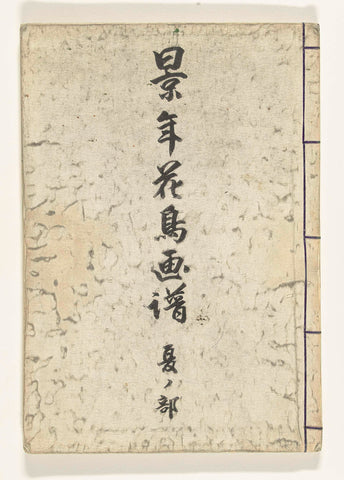 景年花鳥画譜 夏ノ部